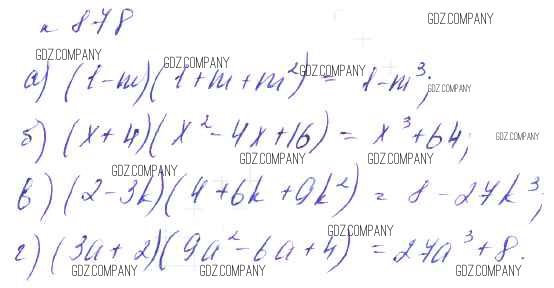 н 878
GDZ.COMPANY
GDZ.COMPANY GDZ.COMPANY GDZ.COMPANY GDZ.COMPANY
а) (1-m)(1+m+m²) = 1-m³;
б) (x+4)(x²-4x+16) = x³+64;
GDZ.COMPANY
GDZ.COMPANY GDZ.COMPANY GDZ.COMPANY
в) (2-3k)(4+6k+9k²) = 8-27k³;
GDZ.COMPANY
г) (3a+2)(9a²-6a+4) = 27a³+8.
GDZ.COMPANY GDZ.COMPANY GDZ.COMPANY